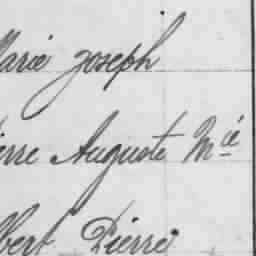 Marie Joseph
ierre Auguste Mié
lbert Pierre